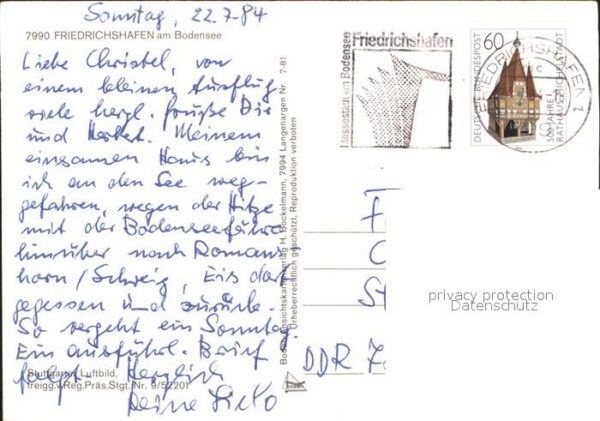 Sonntag, 22.7.84
7990 FRIEDRICHSHAFEN am Bodensee
Liebe Christel, von
einem kleinen Ausflug
viele herzl. Grüße Dir
und Herbert. Meinem
einsamen Haus bin
ich an den See weg-
gefahren, wegen der Hitze
mit der Bodenseefähre
hinüber nach Romans-
horn/Schweiz, Eis dort
gegessen und zurück.
So vergeht ein Sonntag.
Ein ausführl. Brief
folgt. Herzlich
Deine
Stuttgarter Luftbild,
freigg.v.Reg.Präs.Stgt. Nr. 9/52201
Bodenseeansichtskartenverlag H. Bockelmann, 7994 Langenargen Nr. 7-81
Urheberrechtlich geschützt, Reproduktion verboten
Messestadt am Bodensee
Friedrichshafen
60
DEUTSCHE BUNDESPOST
500 JAHRE
RATHAUS MICHELSTADT
FRIEDRICHSHAFEN 1
F
C
St
DDR 7
privacy protection
Datenschutz